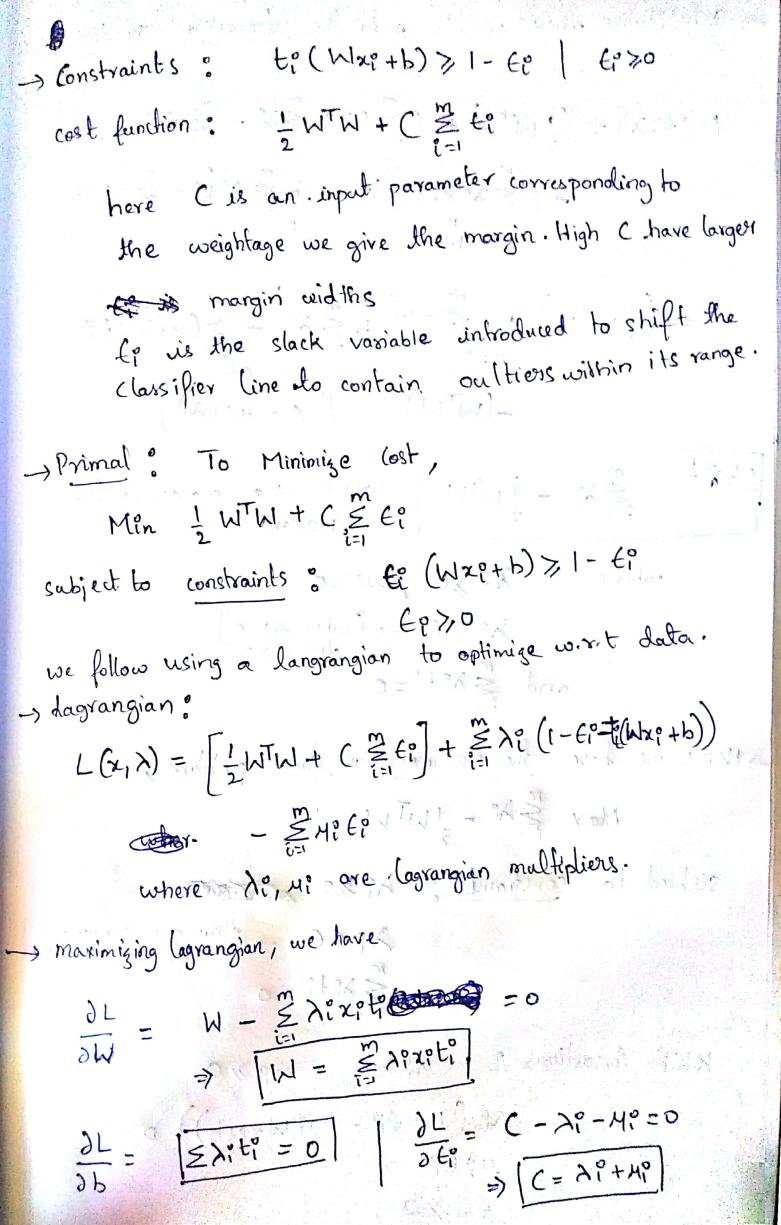 → Constraints : tᵢ (Wxᵢ + b) ≥ 1 - ϵᵢ | ϵᵢ ≥ 0
cost function : 1/2 WᵀW + C Σᵢ₌₁ᵐ tᵢ
here C is an input parameter corresponding to
the weightage we give the margin. High C have larger
margin widths
ϵᵢ is the slack variable introduced to shift the
classifier line to contain oultiers within its range.
→ Primal : To Minimize Cost,
Min 1/2 WᵀW + C Σᵢ₌₁ᵐ ϵᵢ
subject to constraints : tᵢ (Wxᵢ + b) ≥ 1 - ϵᵢ
ϵᵢ ≥ 0
we follow using a langrangian to optimize w.r.t data.
→ Lagrangian :
L(x, λ) = [1/2 WᵀW + C Σᵢ₌₁ᵐ ϵᵢ] + Σᵢ₌₁ᵐ λᵢ (1 - ϵᵢ - tᵢ(Wxᵢ + b))
- Σᵢ₌₁ᵐ μᵢ ϵᵢ
where λᵢ, μᵢ are lagrangian multipliers.
→ maximizing lagrangian, we have
∂L/∂W = W - Σᵢ₌₁ᵐ λᵢ xᵢ tᵢ = 0
⇒ W = Σᵢ₌₁ᵐ λᵢ xᵢ tᵢ
∂L/∂b = Σλᵢ tᵢ = 0 | ∂L/∂ϵᵢ = C - λᵢ - μᵢ = 0
⇒ C = λᵢ + μᵢ